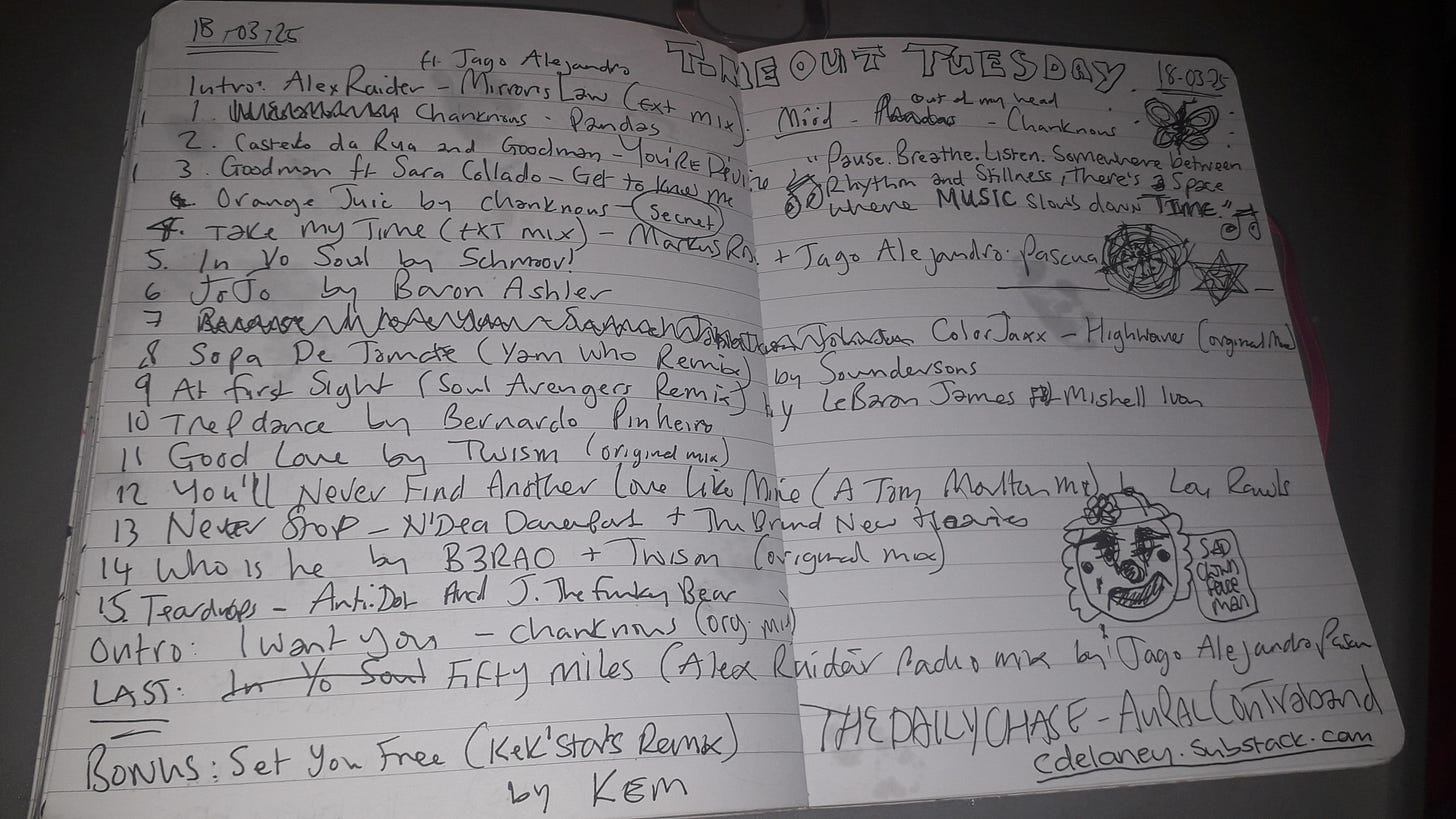 18-03-25
TIMEOUT TUESDAY. 18-03-25
ft. Jago Alejandro
Intro: Alex Raider - Mirrors Law (Ext mix).
1. Chanknous - Pandas
Miid - out of my head - Chanknous
2. Castedo da Rua and Goodman - You'RE Divine
"Pause. Breathe. Listen. Somewhere between
3. Goodman ft Sara Collado - Get to know me
Rhythm and Stillness, There's a Space
Orange Juic by chanknous - (Secret)
where MUSIC slows down TIME."
4. Take my Time (EXT mix) - Markus Ro. + Jago Alejandro Pascua
5. In Yo Soul by Schmoov!
6 JoJo by Baron Ashler
7 ColorJaxx - Highwaves (orginal Mix)
8 Sopa De Tomate (Yam Who Remix) by Soundersons
9 At first Sight (Soul Avengers Remix) by LeBaron James Mishell Ivon
10 Trefdance by Bernardo Pinheiro
11 Good Love by Twism (original mix)
12 You'll Never Find Another Love Like Mine (A Tom Moulton mx) by Lou Rawls
13 Never Stop - N'Dea Davenport + The Brand New Heavies
14 Who is he by B3RAO + Twism (original mix)
15. Teardrops - Anti.Dot And J. The Funky Bear
SAD
CLOWN
MAN
Outro: I want You - chanknous (org. mix)
LAST: In Yo Soul Fifty miles (Alex Raider Radio mix by Jago Alejandro Pascua
THE DAILY CHASE - AURAL Contraband
cdelaney.substack.com
BONUS: Set You Free (Kek'stars Remix)
by KEM